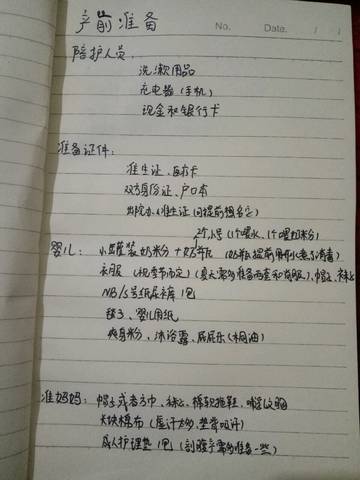 产前准备
No.
Date. / /
陪护人员:
洗漱用品
充电器(手机)
现金和银行卡
准备证件:
准生证、医疗卡
双方身份证、户口本
出院办《准生证》(提前想名字)
2个小号(1个喂水、1个喂奶粉)
婴儿: 小罐装奶粉+奶瓶(奶瓶提前用开水煮消毒)
衣服(视季节而定)(夏天需多准备两套和尚服)、帽子、袜子
NB/S号纸尿裤1包
毯子、婴儿用纸
爽身粉、沐浴露、屁屁乐(桐油)
准妈妈: 帽子或者方巾、袜子、棉软拖鞋、哺乳文胸
大块棉布(虚汗太多,垫背吸汗)
成人护理垫1包(剖腹产需多准备一些)